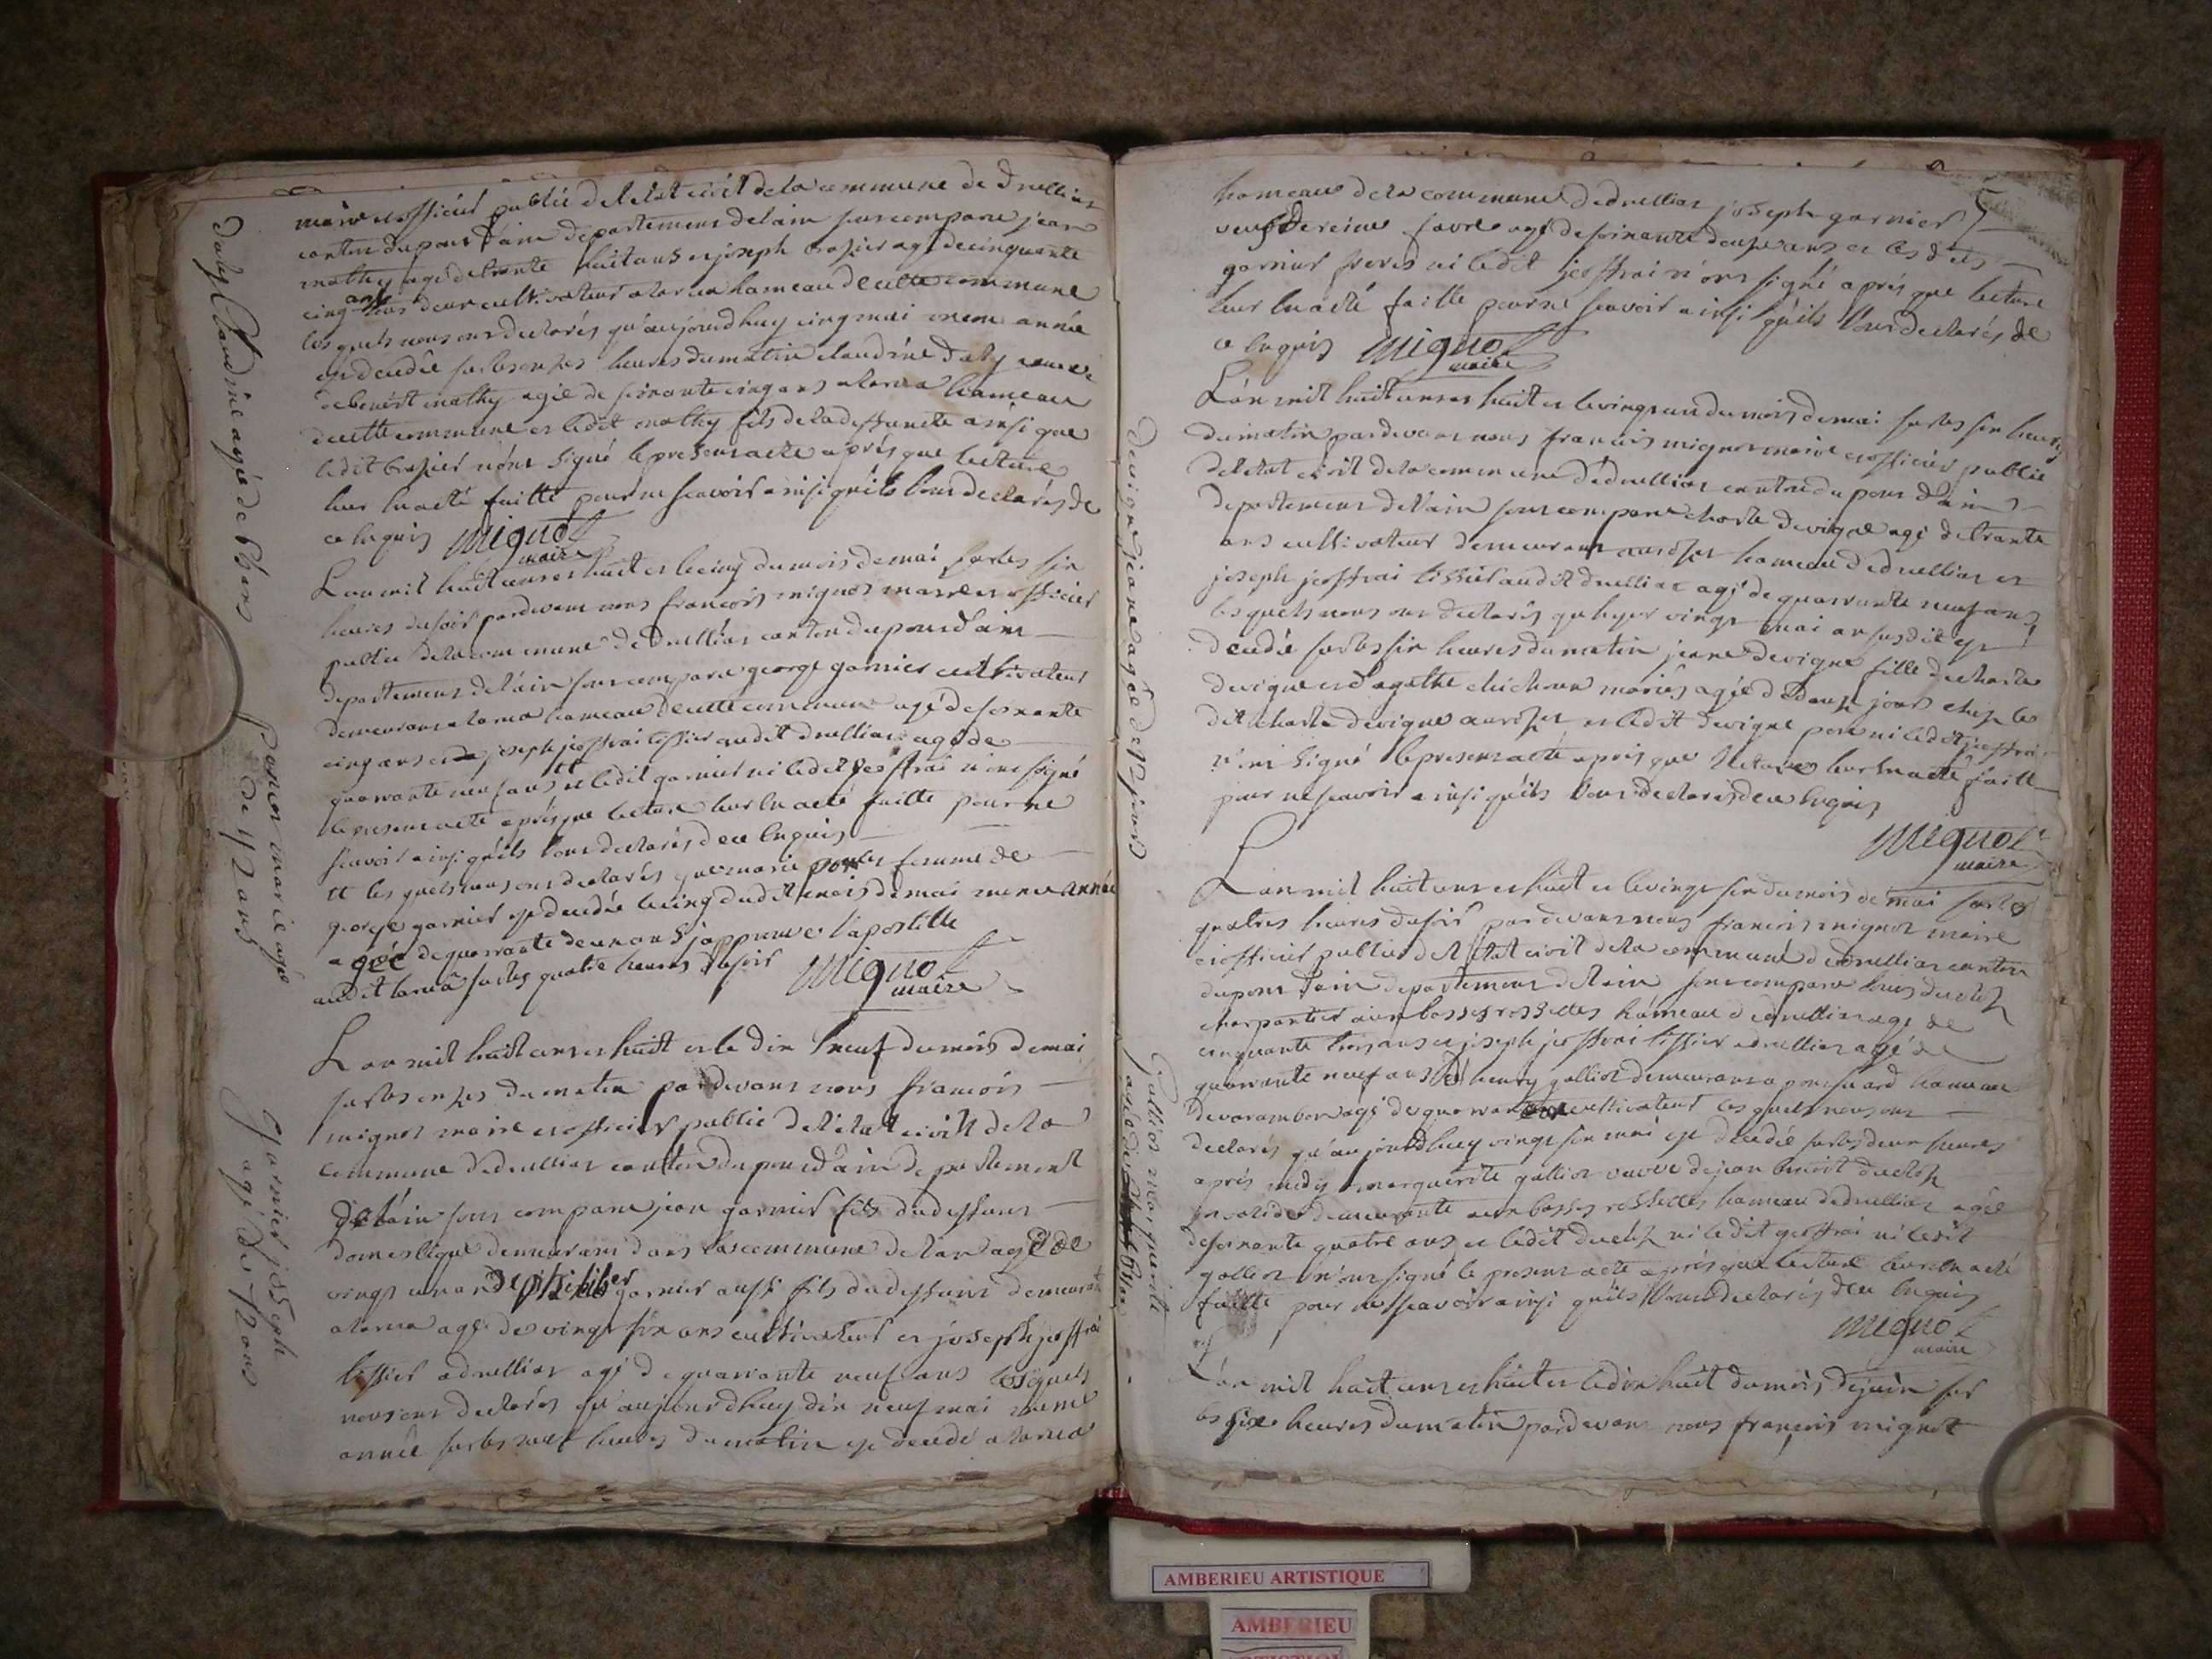 maire et officier public de l'etat civil de la commune de druillias
canton du pont d'ain departement de lain sont comparu jean
mathy agé de trante huit ans et joseph brasier agé de cinquante
cinq ans tous deux cultivateur a la rua hameau de cette commune
lesquels nous ont declarés qu'aujourdhuy cinq mai meme année
est decedée sur les onzes heures du matin claudine daly veuve
de benoist mathy agée de soixante cinq ans a la rua hameau
de cette commune et ledit mathy fils de la deffuncte ainsi que
ledit brasier n'ont signé le present acte aprés que lecture
leur en a eté faitte pour ne scavoir ainsi quéils l'ont declarés de
ce enquis Mignot
maire
L'an mil huit cent et huit et le cinq du mois de mai sur les six
heures du soir pardevant nous francois mignot maire et officier
public de la commune de druillias canton du pont d'ain
departement de l'ain sont comparu george garnier cultivateur
demeurant a la rua hameau de cette commune agé de soixante
cinq ans et joseph jeoffrai tissier audit druillias agé de
quarante neuf ans tt et ledit garnier ni ledit jeoffrai n'ont signé
le present acte aprés que lecture leur en a eté faitte pour ne
scavoir ainsi quéils l'ont declarés de ce enquis
tt lesquels nous ont declarés que marie femme de
george garnier est decedée le cinq dudit mois de mai meme année
agée de quarante deux ans j'approuve l'apostille
audit la rua sur les quatre heures du soir Mignot
maire
L'an mil huit cent et huit et le dix neuf du mois de mai
sur les onzes du matin pardevant nous francois
mignot maire et officier public de l'etat civil de la
commune de druillias canton du pont d'ain departement
de l'ain sont comparu jean garnier fils du deffunt
domestique demeurant dans la commune de agé de
vingt un an et philiber garnier aussi fils du deffunt demeurant
a la rua agé de vingt six ans cultivateur et joseph jeoffrai
tissier a druillias agé de quarante neuf ans lesquels
nous ont declarés qu'aujourdhuy dix neuf mai meme
année sur les neuf heures du matin est decedé a la rua
Daly Claudine agée de 65 ans
marie agée
de 42 ans
Garnier joseph
agé de 72 ans
hameau de la commune de druillias joseph garnier
veuf de reine favre agé de soixante douze ans et les dits
garnier freres ni ledit jeoffrai n'ont signé aprés que lecture
leur en a eté faitte pour ne scavoir ainsi quéils l'ont declarés de
ce enquis Mignot
maire
L'an mil huit cent et huit et le vingt un du mois de mai sur les six heures
du matin pardevant nous francois mignot maire et officier public
de l'etat civil de la commune de druillias canton du pont d'ain
departement de l'ain sont comparu charle devigne agé de trante
ans cultivateur demeurant hameau de druillias et
joseph jeoffrai tissier audit druillias agé de quarante neuf ans
lesquels nous ont declarés qu'hyer vingt mai an susdit est
decedée sur les six heures du matin jeane devigne fille de charle
devigne et d'agathe chichoux mariés agée de douze jours chez le
dit charle devigne et ledit devigne pere ni ledit jeoffrai
n'ont signé le present acte aprés que lecture leur en a eté faitte
pour ne scavoir ainsi quéils l'ont declarés de ce enquis
Mignot
maire
L'an mil huit cent et huit et le vingt six du mois de mai sur les
quatres heures du soir pardevant nous francois mignot maire
et officier public de l'etat civil de la commune de druillias canton
du pont d'ain departement de l'ain sont comparu louis
charpentier aux basses rossettes hameau de druillias agé de
cinquante trois ans et joseph jeoffrai tissier a druillias agé de
quarante neuf ans et henry galliot demeurant a hameau
de varambon agé de quarante cultivateur lesquels nous ont
declarés qu'aujourdhuy vingt six mai est decedée sur les deux heures
aprés midy marguerite galliot veuve de jean benoit
invalide demeurante aux basses rossettes hameau de druillias agée
de soixante quatre ans et ledit ni ledit jeoffrai ni ledit
galliot n'ont signé le present acte aprés que lecture leur en a eté
faitte pour ne scavoir ainsi quéils l'ont declarés de ce enquis
Mignot
maire
L'an mil huit cent et huit et le dix huit du mois de juin sur
les six heures du matin pardevant nous françois mignot
Devigne jeane agée de 12 jours
Galliot marguerite
agée de 64 ans
AMBERIEU ARTISTIQUE
AMBERIEU
ARTISTIQUE